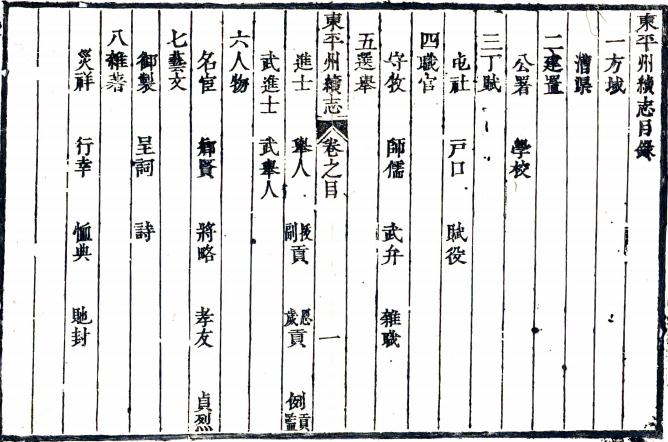 東平州續志目錄
一方域
漕渠
二建置
公署 學校
三丁賦
屯社 戶口 賦役
四職官
守牧 師儒 武弁 雜職
五選舉
東平州續志 卷之目 一
進士 舉人 拔副貢 恩歲貢 例貢監
武進士 武舉人
六人物
名宦 鄉賢 將略 孝友 貞烈
七藝文
御製 呈詞 詩
八雜著
災祥 行幸 恤典 貤封